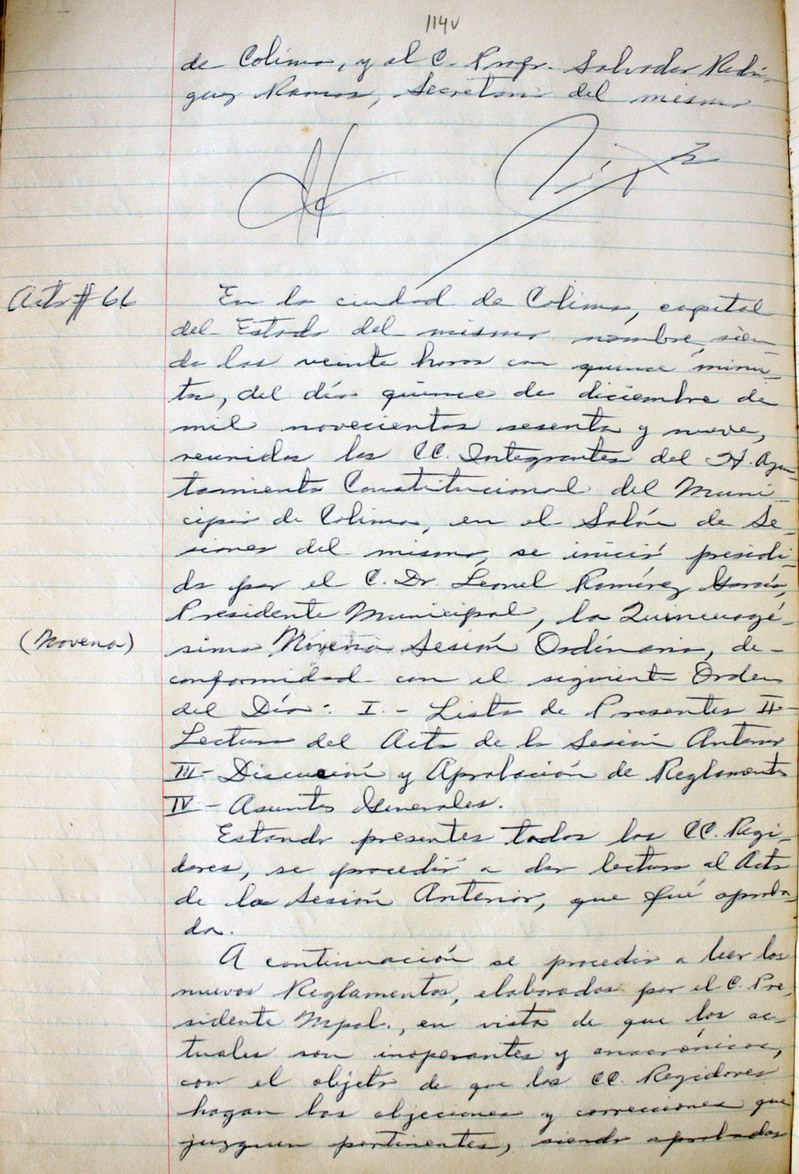 114v
de Colima, y al C. Profr. Salvador Rodrí-
guez Ramos, Secretario del mismo
Acta # 66
En la ciudad de Colima, capital
del Estado del mismo nombre, sien-
do las veinte horas con quince minu-
tos, del día quince de diciembre de
mil novecientos sesenta y nueve,
reunidos los CC. Integrantes del H. Ayun-
tamiento Constitucional del Muni-
cipio de Colima, en el Salón de Se-
siones del mismo, se inició presidi-
da por el C. Dr. Leonel Ramírez García,
Presidente Municipal, la Quincuagé-
(Novena)
sima Novena Sesión Ordinaria, de-
conformidad con el siguiente Orden
del Día: I.- Lista de Presentes II-
Lectura del Acta de la Sesión Anterior
III- Discusión y Aprobación de Reglamentos
IV- Asuntos Generales.
Estando presentes todos los CC. Regi-
dores, se procedió a dar lectura al Acta
de la Sesión Anterior, que fué aproba-
da.
A continuación se procedió a leer los
nuevos Reglamentos, elaborados por el C. Pre-
sidente Mpal., en vista de que los ac-
tuales son inoperantes y anacrónicos,
con el objeto de que los CC. Regidores
hagan las objeciones y correcciones que
juzguen pertinentes, siendo aprobados